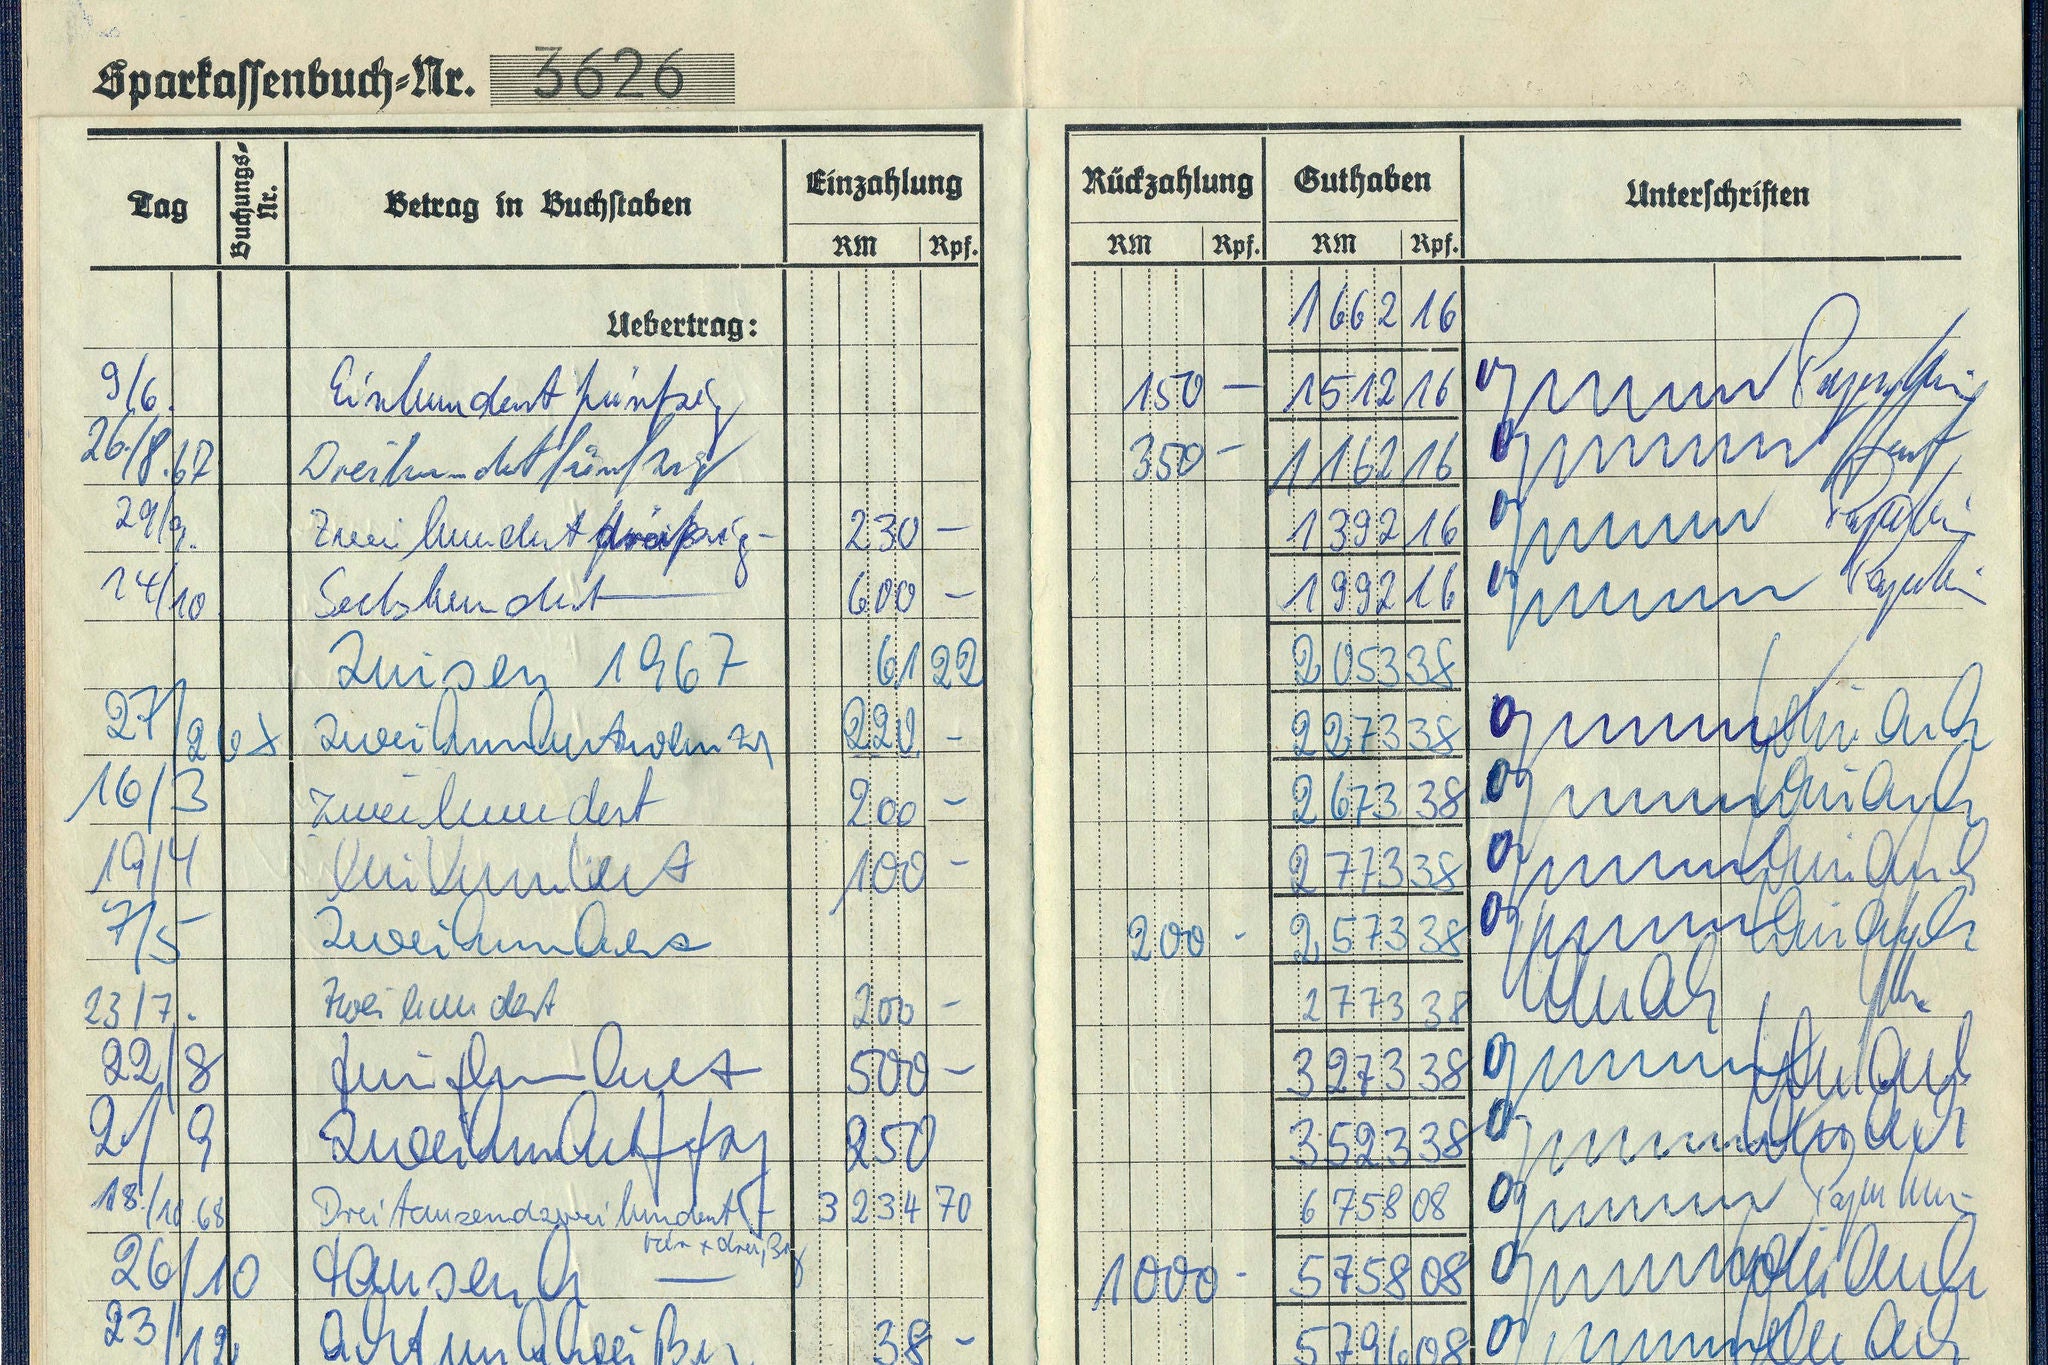 Sparkassenbuch-Nr. 3626
Tag Buchungs-Nr. Betrag in Buchstaben Einzahlung Rückzahlung Guthaben Unterschriften
RM Rpf. RM Rpf. RM Rpf.
Uebertrag: 1662 16
9/6. Einhundertfünfzig 150 – 1512 16
26./8.67 Dreihundertfünfzig 350 – 1162 16
29/9. Zweihundertdreißig – 230 – 1392 16
14/10 Sechshundert 600 – 1992 16
Zinsen 1967 61 22 2053 38
27/2 68 zweihundertzwanzig 220 – 2273 38
16/3 zweihundert 200 – 2673 38
19/4 Einhundert 100 – 2773 38
7/5 Zweihundert 200 - 2573 38
23/7. Zweihundert 200 – 2773 38
22/8 fünfhundert 500 – 3273 38
2/9 zweihundertfzg 250 3523 38
18./10.68 Dreitausendzweihundert
vier + dreißig 3234 70 6758 08
26/10 tausend — 1000 - 5758 08
23/12 achtunddreißig 38 – 5796 08